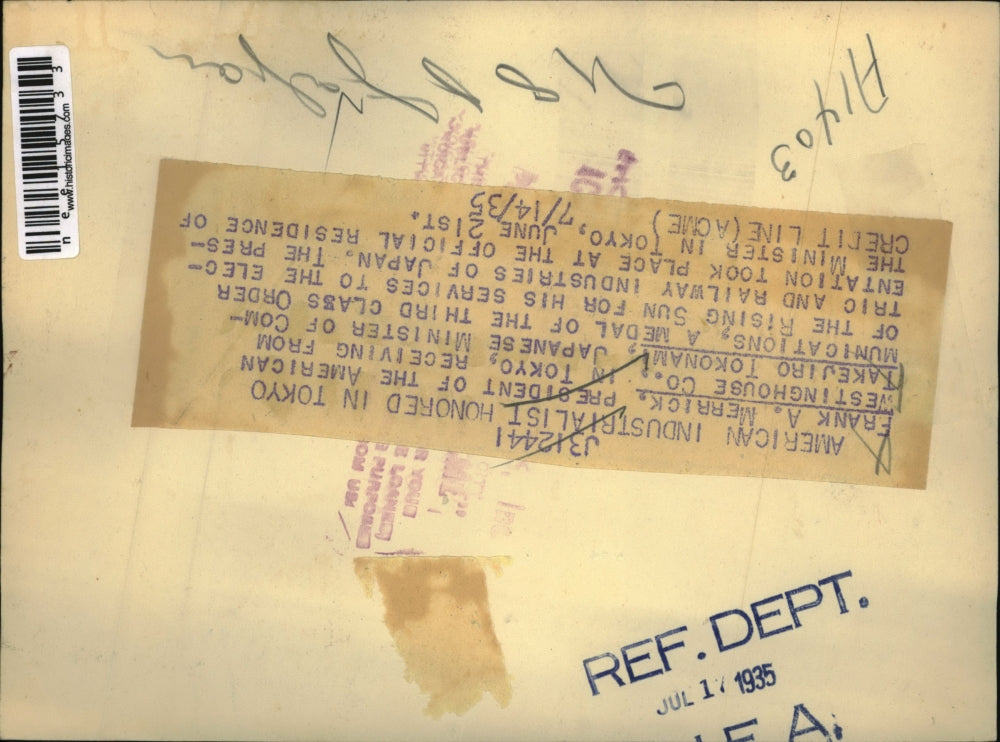 A1403
U S & Japan
J312441
AMERICAN INDUSTRIALIST HONORED IN TOKYO
FRANK A. MERRICK, PRESIDENT OF THE AMERICAN
WESTINGHOUSE CO., IN TOKYO, RECEIVING FROM
TAKEJIRO TOKONAMI, JAPANESE MINISTER OF COM-
MUNICATIONS, A MEDAL OF THE THIRD CLASS ORDER
OF THE RISING SUN FOR HIS SERVICES TO THE ELEC-
TRIC AND RAILWAY INDUSTRIES OF JAPAN. THE PRES-
ENTATION TOOK PLACE AT THE OFFICIAL RESIDENCE OF
THE MINISTER IN TOKYO, JUNE 21ST.
CREDIT LINE (ACME) 7/14/35
REF. DEPT.
JUL 17 1935
E. A.
www.historicimages.com